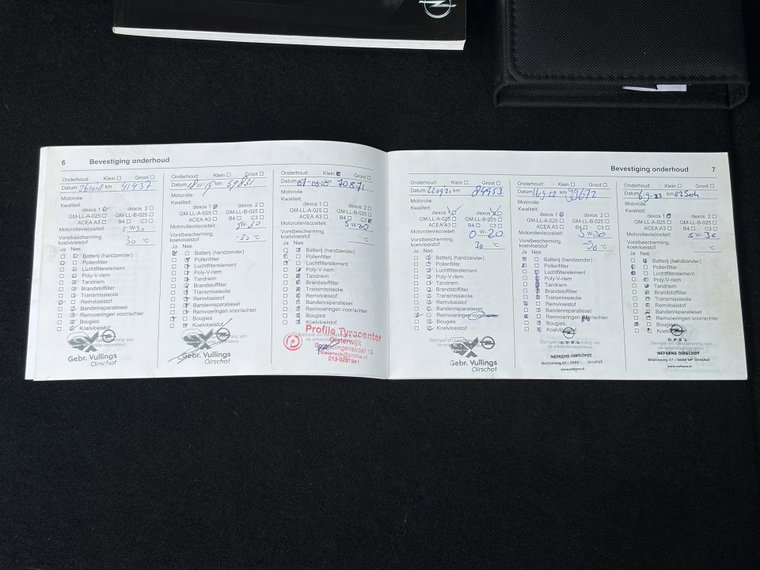 6 Bevestiging onderhoud
Onderhoud: Klein Groot
Datum km 41437
Motorolie
Kwaliteit:
dexos 1 dexos 2
GM-LL-A-025 GM-LL-B-025
ACEA A3 B4 C3
Motorolieviscositeit: 5W30
Vorstbescherming
koelvloeistof 30 °C
Ja Nee
Batterij (handzender)
Pollenfilter
Luchtfilterelement
Poly-V-riem
Tandriem
Brandstoffilter
Transmissieolie
Remvloeistof
Bandenreparatieset
Remvoeringen voor/achter
Bougies
Koelvloeistof
Gebr. Vullings
Oirschot
Onderhoud: Klein Groot
Datum km
Motorolie
Kwaliteit:
dexos 1 dexos 2
GM-LL-A-025 GM-LL-B-025
ACEA A3 B4 C3
Motorolieviscositeit: 5W-30
Vorstbescherming
koelvloeistof -30 °C
Ja Nee
Batterij (handzender)
Pollenfilter
Luchtfilterelement
Poly-V-riem
Tandriem
Brandstoffilter
Transmissieolie
Remvloeistof
Bandenreparatieset
Remvoeringen voor/achter
Bougies
Koelvloeistof
Gebr. Vullings
Oirschot
Onderhoud: Klein Groot
Datum km
Motorolie
Kwaliteit:
dexos 1 dexos 2
GM-LL-A-025 GM-LL-B-025
ACEA A3 B4 C3
Motorolieviscositeit:
Vorstbescherming
koelvloeistof °C
Ja Nee
Batterij (handzender)
Pollenfilter
Luchtfilterelement
Poly-V-riem
Tandriem
Brandstoffilter
Transmissieolie
Remvloeistof
Bandenreparatieset
Remvoeringen voor/achter
Bougies
Koelvloeistof
Profile Tyrecenter
Oisterwijk
Bevestiging onderhoud 7
Onderhoud: Klein Groot
Datum km 84953
Motorolie
Kwaliteit:
dexos 1 dexos 2
GM-LL-A-025 GM-LL-B-025
ACEA A3 B4 C3
Motorolieviscositeit: 0-20
Vorstbescherming
koelvloeistof 30 °C
Ja Nee
Batterij (handzender)
Pollenfilter
Luchtfilterelement
Poly-V-riem
Tandriem
Brandstoffilter
Transmissieolie
Remvloeistof
Bandenreparatieset
Remvoeringen voor/achter
Bougies
Koelvloeistof
Gebr. Vullings
Oirschot
Onderhoud: Klein Groot
Datum 16-9-22 km 99672
Motorolie
Kwaliteit:
dexos 1 dexos 2
GM-LL-A-025 GM-LL-B-025
ACEA A3 B4 C3
Motorolieviscositeit: 5W30
Vorstbescherming
koelvloeistof -30 °C
Ja Nee
Batterij (handzender)
Pollenfilter
Luchtfilterelement
Poly-V-riem
Tandriem
Brandstoffilter
Transmissieolie
Remvloeistof
Bandenreparatieset
Remvoeringen voor/achter
Bougies
Koelvloeistof
OPEL
NEFKENS OIRSCHOT
Onderhoud: Klein Groot
Datum 6-9-23 km
Motorolie
Kwaliteit:
dexos 1 dexos 2
GM-LL-A-025 GM-LL-B-025
ACEA A3 B4 C3
Motorolieviscositeit:
Vorstbescherming
koelvloeistof °C
Ja Nee
Batterij (handzender)
Pollenfilter
Luchtfilterelement
Poly-V-riem
Tandriem
Brandstoffilter
Transmissieolie
Remvloeistof
Bandenreparatieset
Remvoeringen voor/achter
Bougies
Koelvloeistof
OPEL
NEFKENS OIRSCHOT